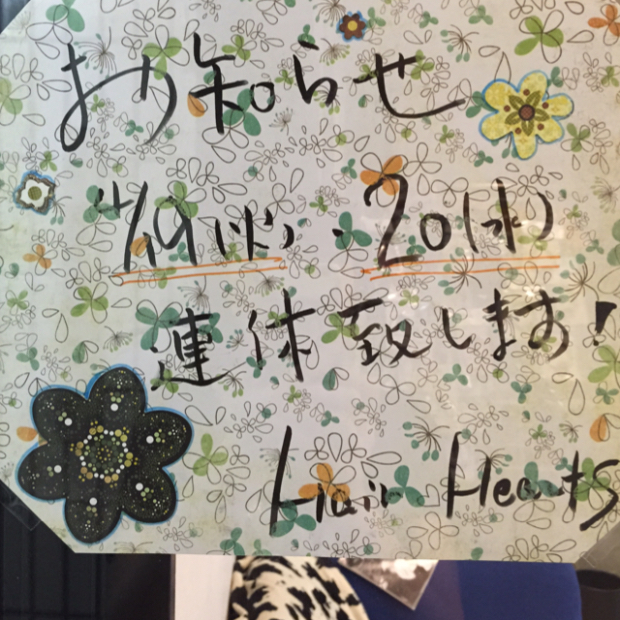 お知らせ
4/19(火)・20(水)
連休致します!
Hair Hearts